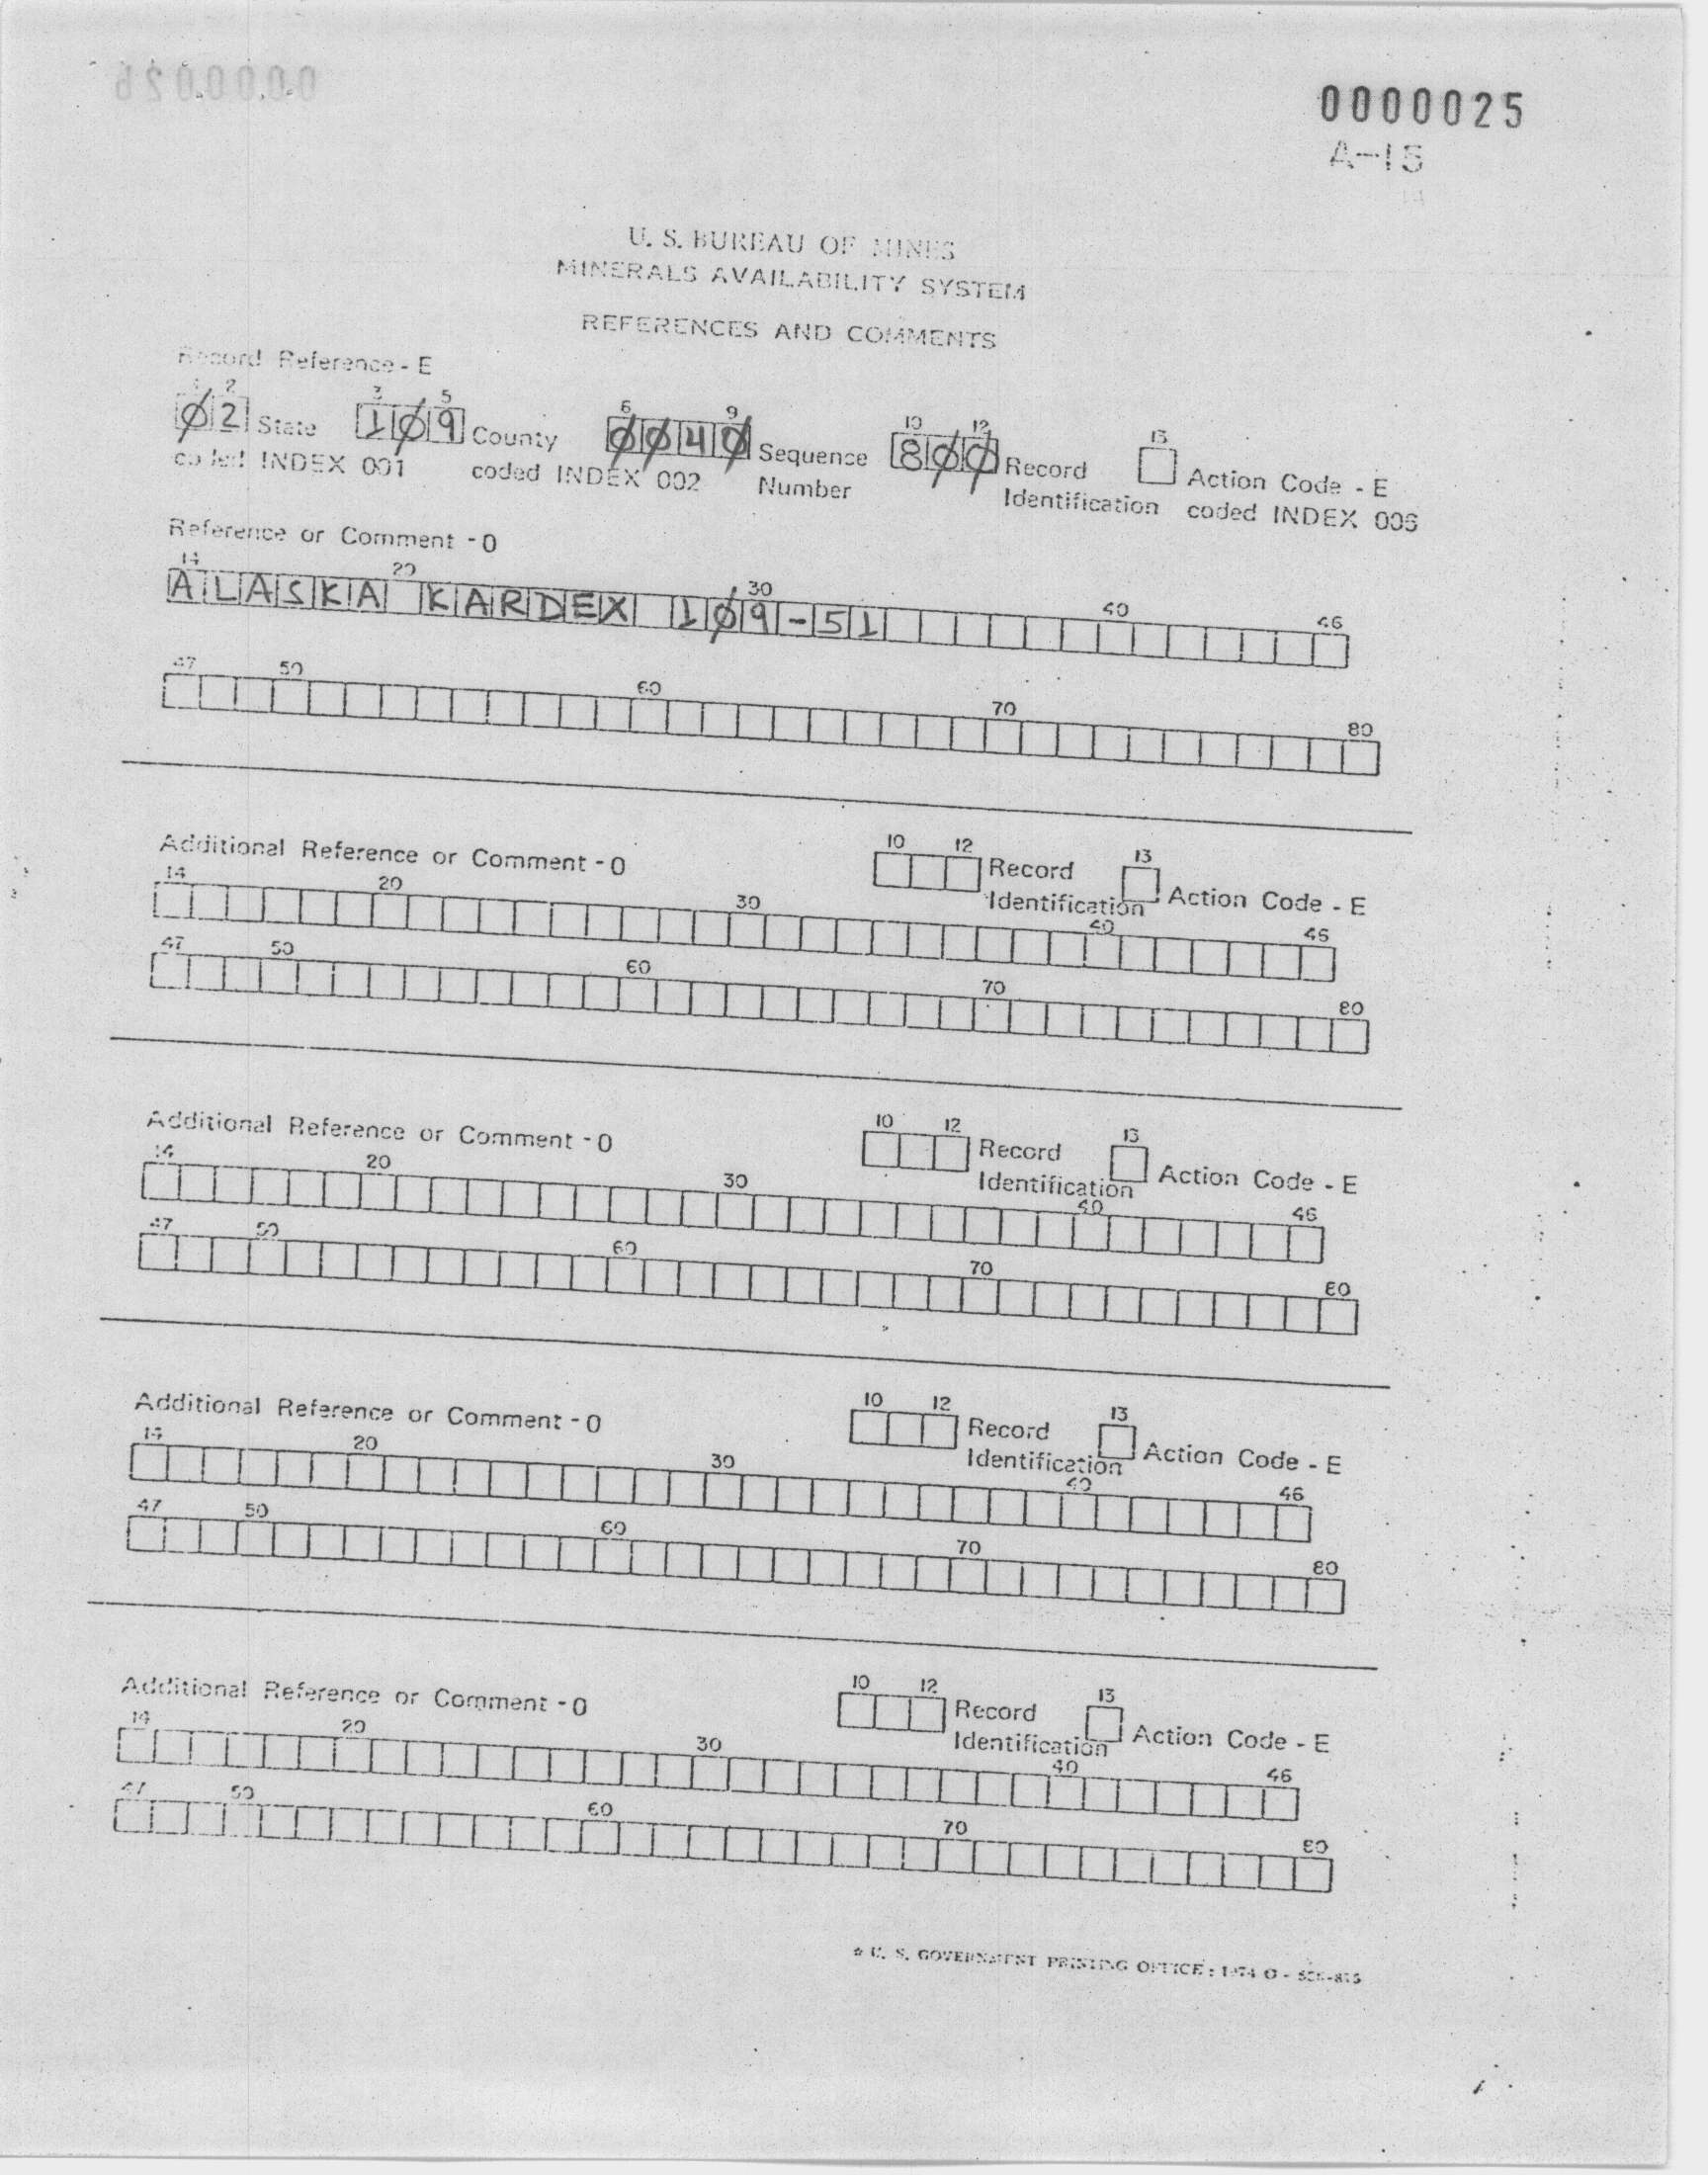 0000025
A-15
U. S. BUREAU OF MINES
MINERALS AVAILABILITY SYSTEM
REFERENCES AND COMMENTS
Record Reference - E
1 2 3 5 6 9 10 12 13
02 State 109 County 0040 Sequence Number 800 Record Identification Action Code - E
coded INDEX 001 coded INDEX 002 coded INDEX 006
Reference or Comment - O
14 20 30 40 46
ALASKA KARDEX 109-51
47 50 60 70 80
Additional Reference or Comment - O 10 12 Record Identification 13 Action Code - E
14 20 30 40 46
47 50 60 70 80
Additional Reference or Comment - O 10 12 Record Identification 13 Action Code - E
14 20 30 40 46
47 50 60 70 80
Additional Reference or Comment - O 10 12 Record Identification 13 Action Code - E
14 20 30 40 46
47 50 60 70 80
Additional Reference or Comment - O 10 12 Record Identification 13 Action Code - E
14 20 30 40 46
47 50 60 70 80
☆ U. S. GOVERNMENT PRINTING OFFICE : 1974 O -